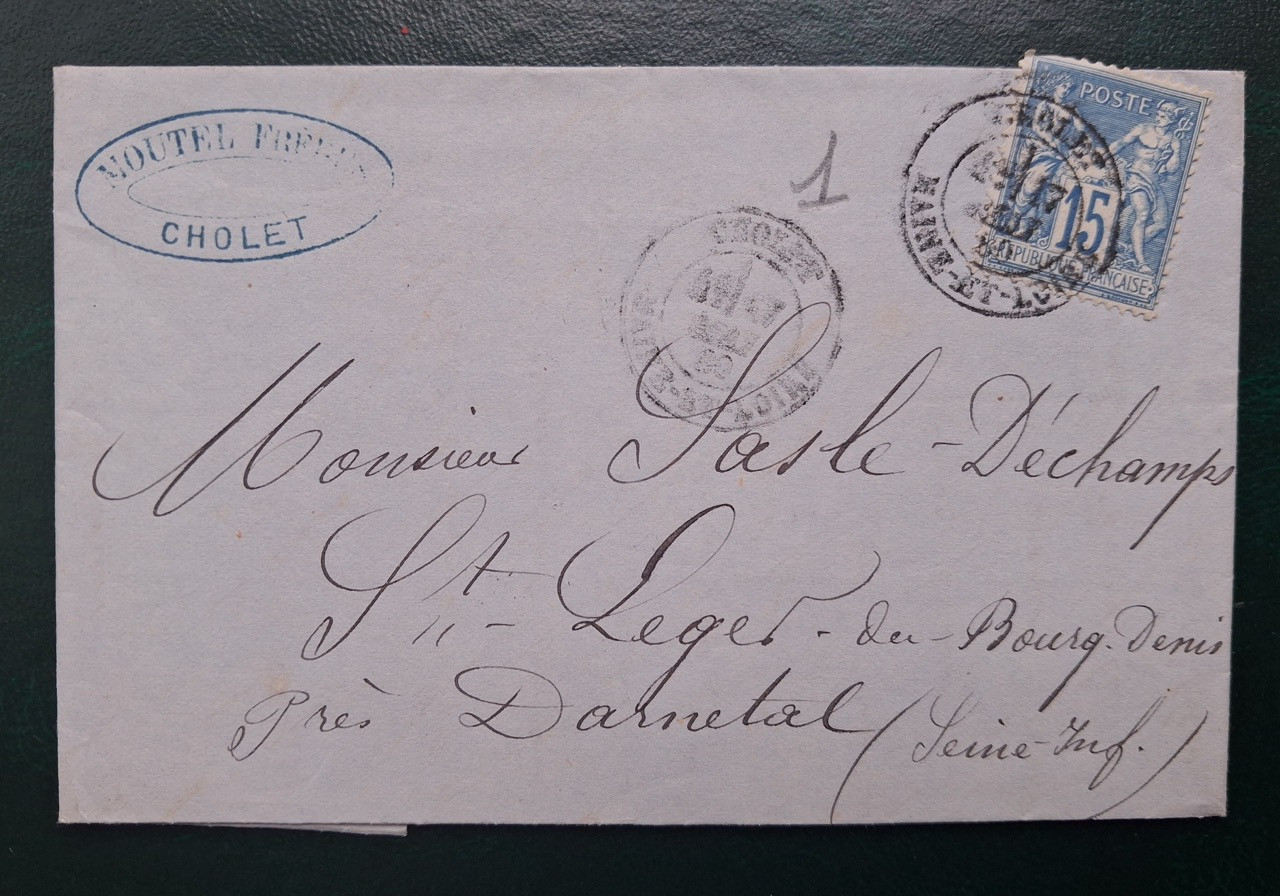 MOUTEL FRÈRES
CHOLET
1
POSTE
15
REPUBLIQUE FRANÇAISE
CHOLET
17
MAINE-ET-LOIRE
CHOLET
MAINE-ET-LOIRE
Monsieur Sasle-Déchamps
St-Leger-du-Bourg-Denis
Près Darnetal (Seine-Inf.)